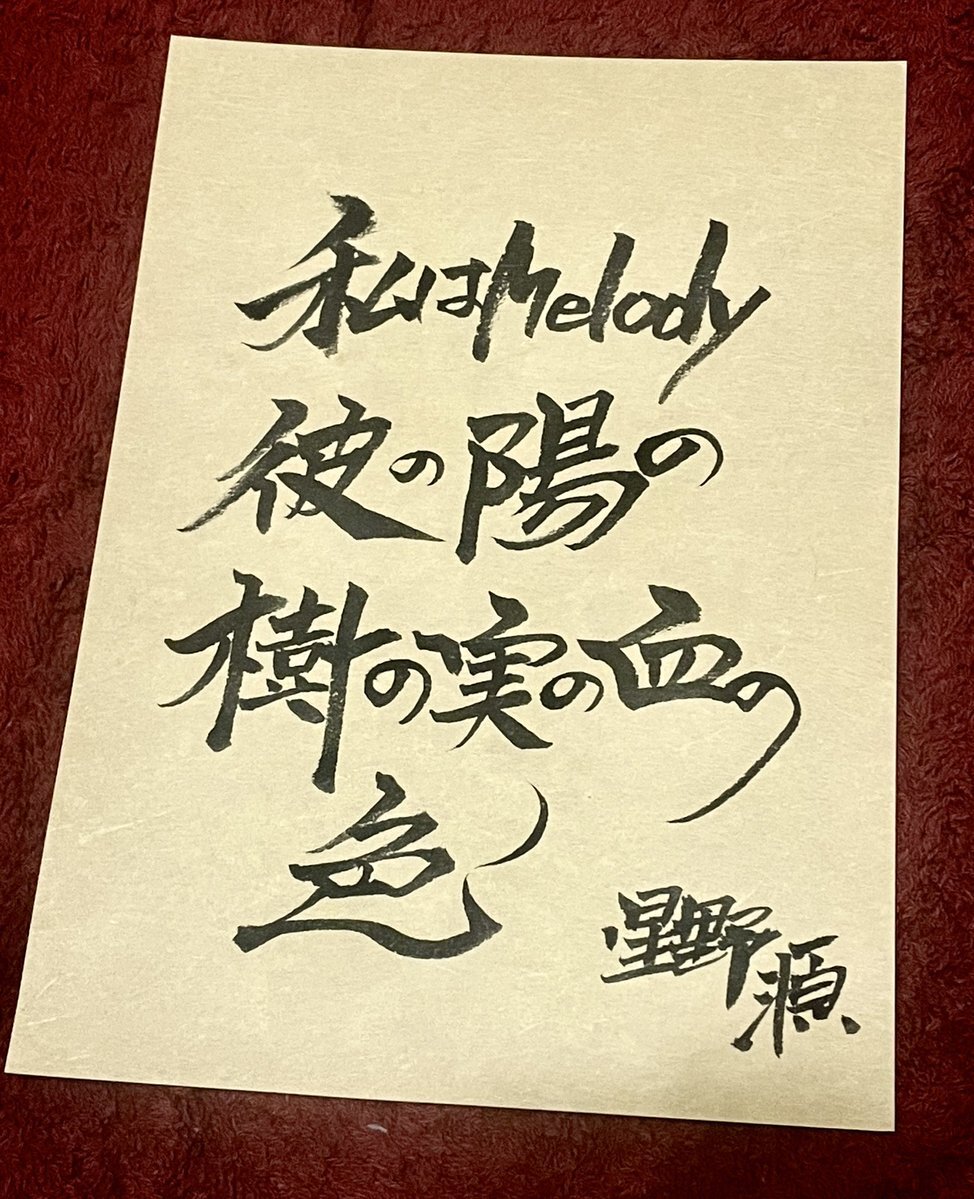 私はMelody
彼の陽の
樹の実の血の
色
星野源